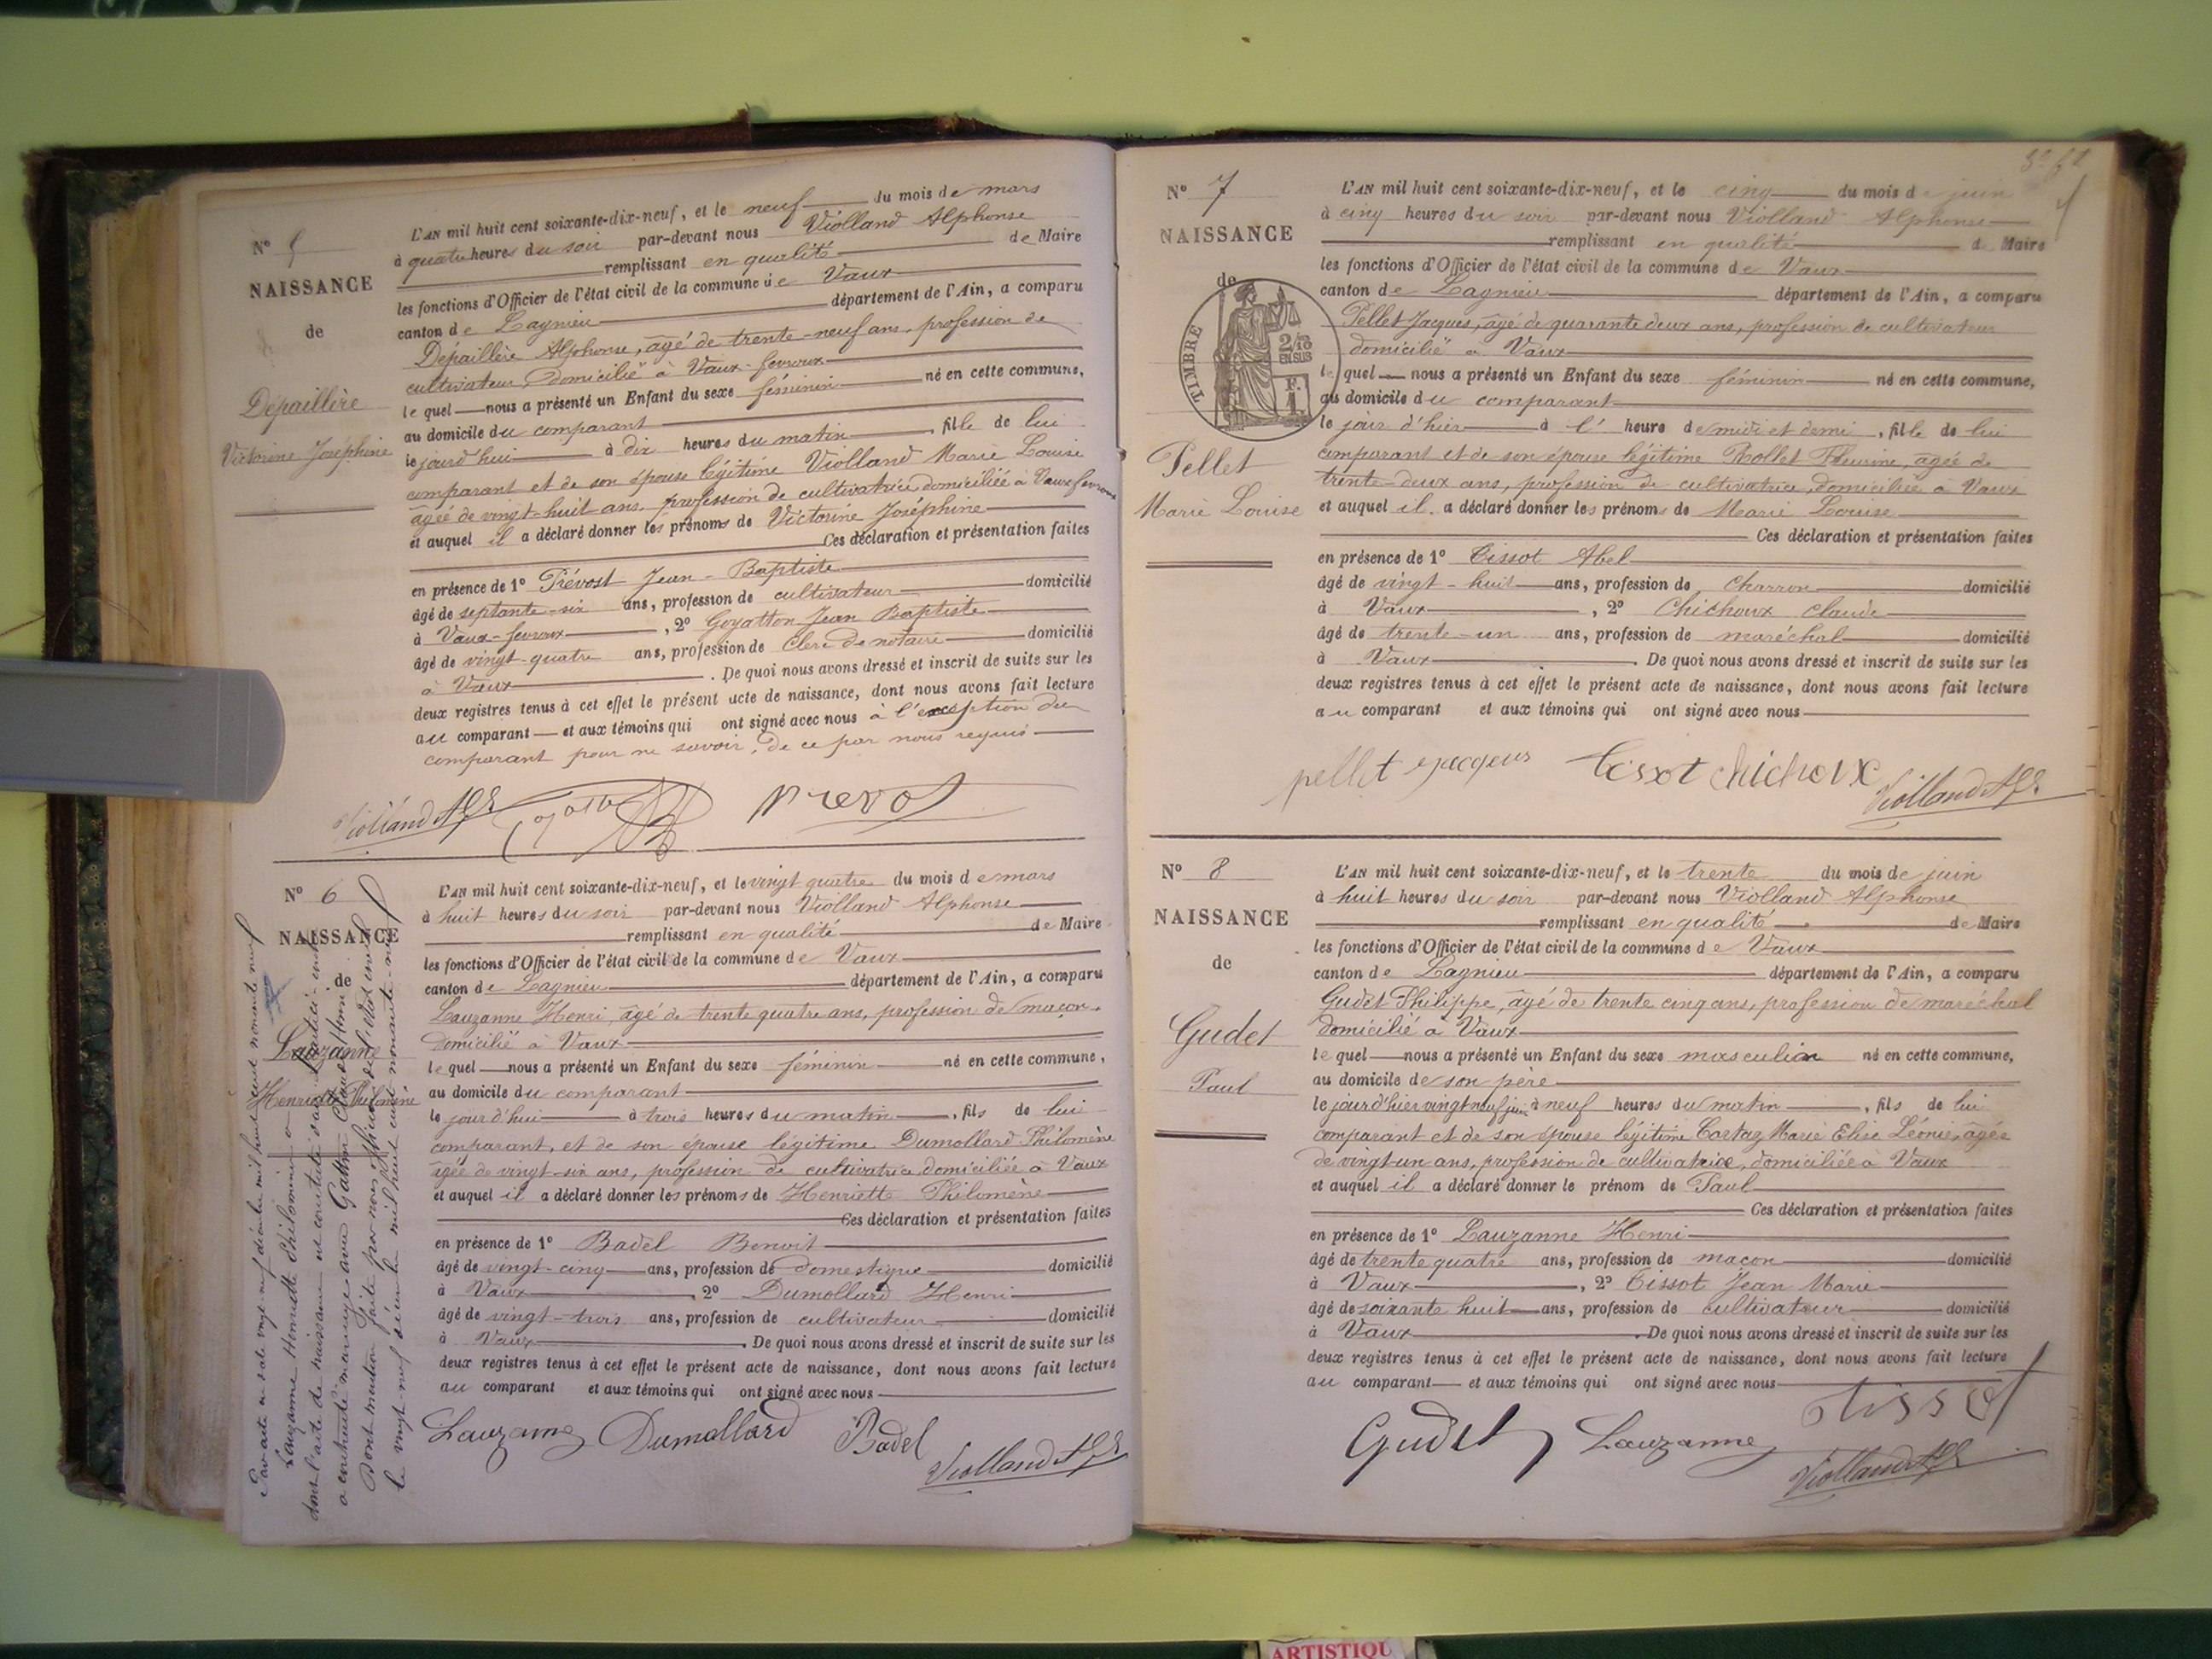 N° 5
NAISSANCE
de
Dépaillère
Victorine Joséphine
L'AN mil huit cent soixante-dix-neuf, et le neuf du mois de mars
à quatre heures du soir par-devant nous Violland Alphonse
remplissant en qualité de Maire
les fonctions d'Officier de l'état civil de la commune de Vaux
canton de Lagnieu département de l'Ain, a comparu
Dépaillère Alphonse, âgé de trente-neuf ans, profession de
cultivateur, domicilié à Vaux-fevroux
lequel nous a présenté un Enfant du sexe féminin né en cette commune,
au domicile du comparant
le jourd'hui à dix heures du matin, fille de lui
comparant et de son épouse légitime Violland Marie Louise
âgée de vingt-huit ans, profession de cultivatrice domiciliée à Vaux fevroux
et auquel il a déclaré donner les prénoms de Victorine Joséphine
Ces déclaration et présentation faites
en présence de 1° Prévost Jean-Baptiste
âgé de septante-six ans, profession de cultivateur domicilié
à Vaux-fevroux, 2° Goyatton Jean Baptiste
âgé de vingt-quatre ans, profession de clerc de notaire domicilié
à Vaux. De quoi nous avons dressé et inscrit de suite sur les
deux registres tenus à cet effet le présent acte de naissance, dont nous avons fait lecture
au comparant et aux témoins qui ont signé avec nous à l'exception du
comparant pour ne savoir, de ce par nous requis
Violland Alph Prevost
N° 6
NAISSANCE
de
Lauzanne
Henriette Philomène
L'AN mil huit cent soixante-dix-neuf, et le vingt quatre du mois de mars
à huit heures du soir par-devant nous Violland Alphonse
remplissant en qualité de Maire
les fonctions d'Officier de l'état civil de la commune de Vaux
canton de Lagnieu département de l'Ain, a comparu
Lauzanne Henri, âgé de trente quatre ans, profession de maçon
domicilié à Vaux
lequel nous a présenté un Enfant du sexe féminin né en cette commune,
au domicile du comparant
le jourd'hui à trois heures du matin, fils de lui
comparant, et de son épouse légitime Dumollard Philomène
âgée de vingt-six ans, profession de cultivatrice domiciliée à Vaux
et auquel il a déclaré donner les prénoms de Henriette Philomène
Ces déclaration et présentation faites
en présence de 1° Badel Benoit
âgé de vingt-cinq ans, profession de domestique domicilié
à Vaux, 2° Dumollard Henri
âgé de vingt-trois ans, profession de cultivateur domicilié
à Vaux. De quoi nous avons dressé et inscrit de suite sur les
deux registres tenus à cet effet le présent acte de naissance, dont nous avons fait lecture
au comparant et aux témoins qui ont signé avec nous
Lauzanne Dumollard Badel
Violland Alph
Par acte en date vingt-neuf décembre mil huit cent nonante neuf
Lauzanne Henriette Philomène
dont l'acte de naissance est constaté
a contracté mariage avec Gattin
Dont mention faite par nous officier de l'état civil
le vingt-neuf décembre mil huit cent nonante-neuf
N° 7
NAISSANCE
de
TIMBRE
2/10
EN SUS
F.
1
Pellet
Marie Louise
L'AN mil huit cent soixante-dix-neuf, et le cinq du mois de juin
à cinq heures du soir par-devant nous Violland Alphonse
remplissant en qualité de Maire
les fonctions d'Officier de l'état civil de la commune de Vaux
canton de Lagnieu département de l'Ain, a comparu
Pellet Jacques, âgé de quarante deux ans, profession de cultivateur
domicilié à Vaux
lequel nous a présenté un Enfant du sexe féminin né en cette commune,
au domicile du comparant
le jour d'hier à l' heure de midi et demi, fille de lui
comparant et de son épouse légitime Rollet Fleurine, âgée de
trente-deux ans, profession de cultivatrice, domiciliée à Vaux
et auquel il a déclaré donner les prénoms de Marie Louise
Ces déclaration et présentation faites
en présence de 1° Tissot Abel
âgé de vingt-huit ans, profession de Charron domicilié
à Vaux, 2° Chichoux Claude
âgé de trente-un ans, profession de maréchal domicilié
à Vaux. De quoi nous avons dressé et inscrit de suite sur les
deux registres tenus à cet effet le présent acte de naissance, dont nous avons fait lecture
au comparant et aux témoins qui ont signé avec nous
pellet jacques Tissot chichoux
Violland Alph
N° 8
NAISSANCE
de
Gudet
Paul
L'AN mil huit cent soixante-dix-neuf, et le trente du mois de juin
à huit heures du soir par-devant nous Violland Alphonse
remplissant en qualité de Maire
les fonctions d'Officier de l'état civil de la commune de Vaux
canton de Lagnieu département de l'Ain, a comparu
Gudet Philippe, âgé de trente cinq ans, profession de maréchal
domicilié à Vaux
lequel nous a présenté un Enfant du sexe masculin né en cette commune,
au domicile de son père
le jour d'hier vingt neuf juin à neuf heures du matin, fils de lui
comparant et de son épouse légitime Cortaz Marie Elise Léonie, âgée
de vingt-un ans, profession de cultivatrice, domiciliée à Vaux
et auquel il a déclaré donner le prénom de Paul
Ces déclaration et présentation faites
en présence de 1° Lauzanne Henri
âgé de trente quatre ans, profession de maçon domicilié
à Vaux, 2° Tissot Jean Marie
âgé de soixante huit ans, profession de cultivateur domicilié
à Vaux. De quoi nous avons dressé et inscrit de suite sur les
deux registres tenus à cet effet le présent acte de naissance, dont nous avons fait lecture
au comparant et aux témoins qui ont signé avec nous
Gudet Lauzanne tissot
Violland Alph
ARTISTIQU